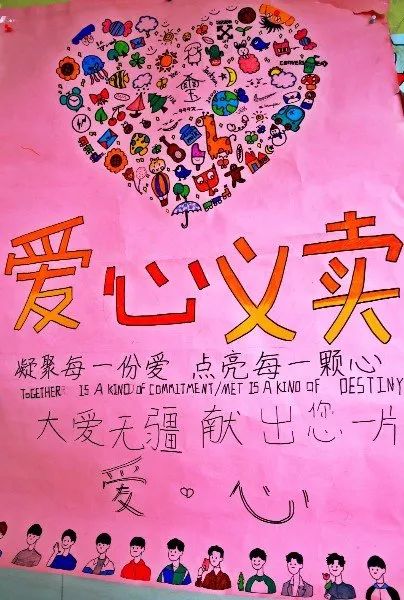 爱心义卖
凝聚每一份爱 点亮每一颗心
TOGETHER IS A KIND OF COMMITMENT/MET IS A KIND OF DESTINY
大爱无疆 献出您一片
爱·心